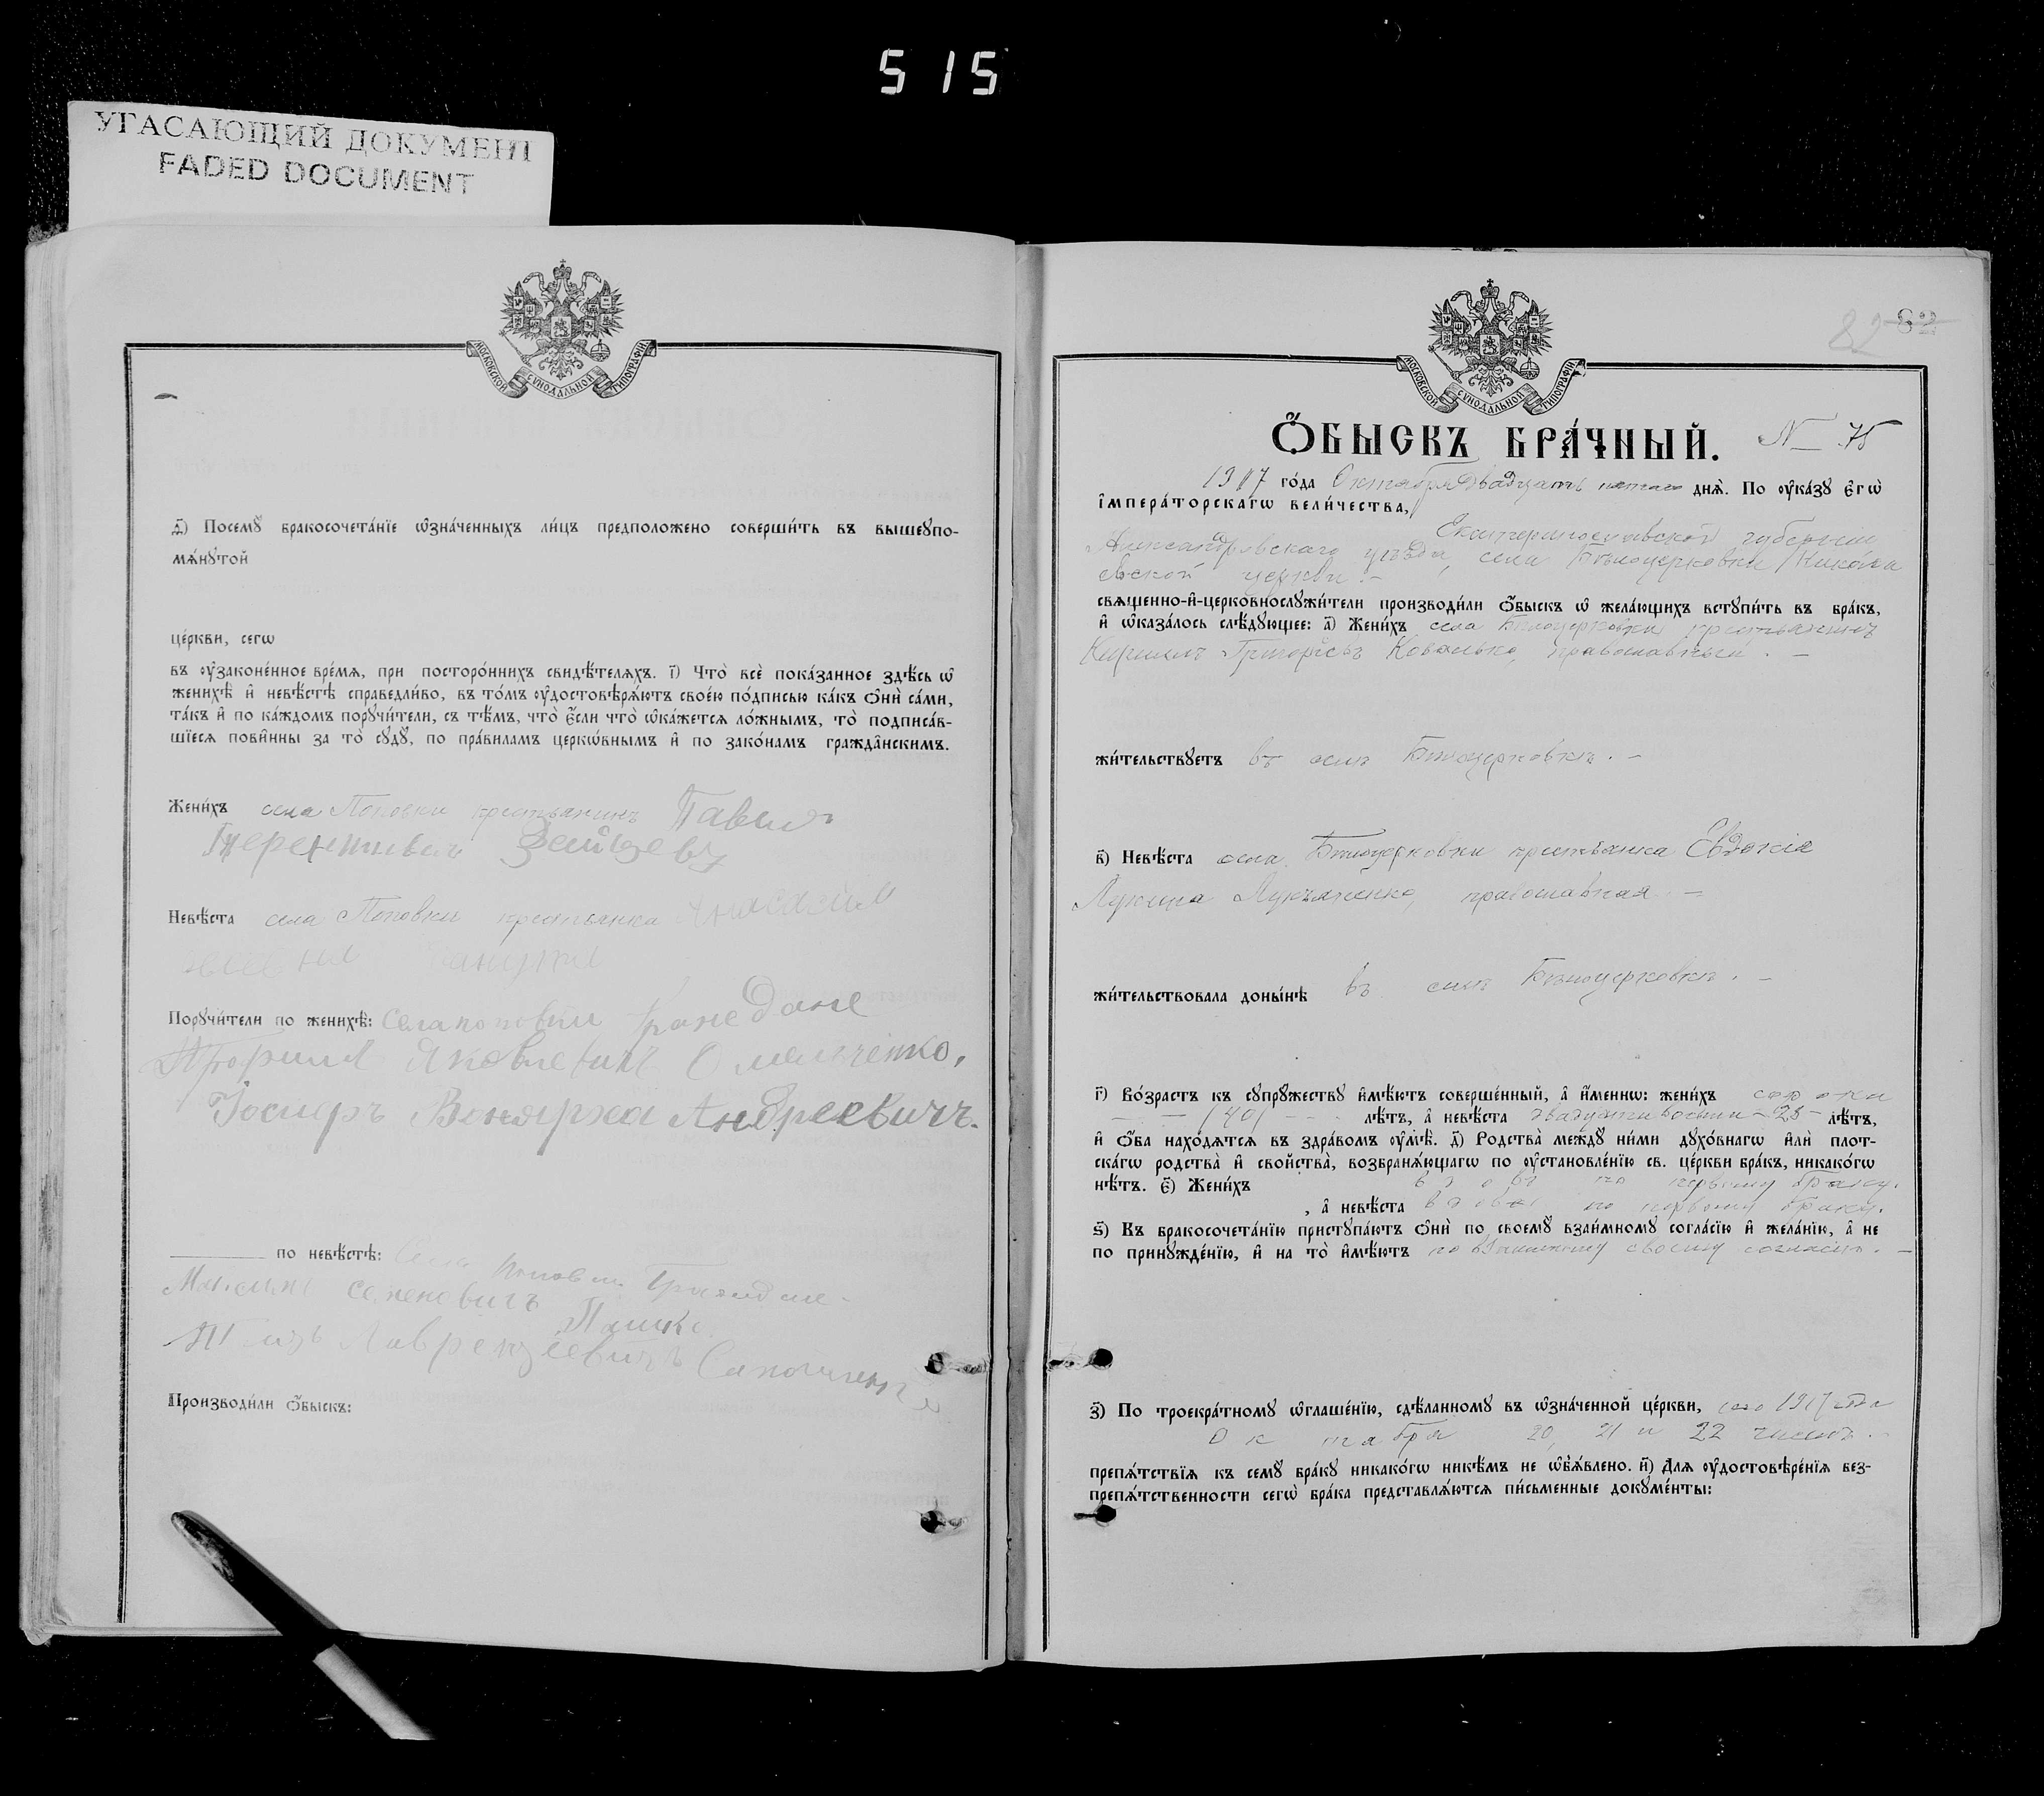 515
УГАСАЮЩИЙ ДОКУМЕНТ
FADED DOCUMENT
МОСКОВСКОЙ СѴНОДАЛЬНОЙ ТИПОГРАФІИ
д҃і) Посемꙋ̀ бракосочета́нїе ѡ҆зна́ченныхъ ли́цъ предположено соверши́ть въ вышеупо-
мѧ́нꙋтой
це́ркви, сегѡ̀
въ ᲂу҆законе́нное вре́мѧ, при посторо́ннихъ свидѣ́телѧхъ. і҃) Что̀ всѐ пока́занное здѣ́сь ѡ҆
женихѣ̀ и҆ невѣ́стѣ справедли́во, въ то́мъ ᲂу҆достовѣрѧ́ютъ свое́ю по́дписью ка́къ ѻ҆нѝ са́ми,
та́къ и҆ по ка́ждомъ порꙋчи́тели, съ тѣ́мъ, что̀ є҆́сли что̀ ѡ҆ка́жетсѧ ло́жнымъ, то̀ подписа́в-
шїесѧ пови́нны за то̀ сꙋдꙋ̀, по пра́виламъ церкѡ́внымъ и҆ по зако́намъ гражда̂нскимъ.
Жени́хъ села Поповки крестьянинъ Павелъ
Терентиевъ
Невѣ́ста села Поповки крестьянка
Порꙋчи́тели по женихѣ̀: села поповки
Трофимъ Яковлевичъ Омельченко,
Андреевичъ.
по невѣ́стѣ:
семеновичъ
Лаврентіевичъ
Производи́ли ѻ҆́быскъ:
82 82
МОСКОВСКОЙ СѴНОДАЛЬНОЙ ТИПОГРАФІИ
Ѻ҆́БЫСКЪ БРА́ЧНЫЙ. № 75
1917 го́да Октября двадцать пятаго днѧ̀. По ᲂу҆ка́зꙋ є҆гѡ̀
і҆мпера́торскагѡ вели́чества,
Екатеринославской губерніи
Александровскаго уѣзда, села Бѣлоцерковки Никола
евской церкви. –
свѧще́нно-и҆-церковнослꙋжи́тели производи́ли ѻ҆́быскъ ѡ҆ жела́ющихъ встꙋпи́ть въ бра́къ,
и҆ ѡ҆каза́лось слѣ́дꙋющее: а҃) Жени́хъ села Бѣлоцерковки крестьянинъ
Григорьевъ Ковалько, православный. –
жи́тельствꙋетъ въ селѣ Бѣлоцерковкѣ. –
в҃) Невѣ́ста села Бѣлоцерковки крестьянка Евдокія
Лукина Лукьяненко, православная –
жи́тельствовала доны́нѣ въ селѣ Бѣлоцерковкѣ. –
г҃) Во́зрастъ къ сꙋпрꙋ́жествꙋ и҆мѣ́ютъ соверше́нный, а҆ и҆́меннѡ: жени́хъ сорока
– – (40) – – лѣ́тъ, а҆ невѣ́ста двадцати восьми – 28 – лѣ́тъ,
и҆ ѻ҆́ба нахо́дѧтсѧ въ здра́вомъ ᲂу҆мѣ̀. д҃) Родства̀ междꙋ̀ ни́ми дꙋхо́внагѡ и҆лѝ плот-
ска́гѡ родства̀ и҆ сво́йства̀, возбранѧ́ющагѡ по ᲂу҆становле́нїю св. це́ркви бра́къ, никако́гѡ
нѣ́тъ. є҃) Жени́хъ вдовъ по первому браку.
, а҆ невѣ́ста вдова по первому браку.
ѕ҃) Къ бракосочета́нїю пристꙋпа́ютъ ѻ҆нѝ по своемꙋ̀ взаи́мномꙋ согла́сїю и҆ жела́нїю, а҆ не
по принꙋжде́нїю, и҆ на то̀ и҆мѣ́ютъ по взаимному своему согласію. –
з҃) По троекра́тномꙋ ѡ҆глаше́нїю, сдѣ́ланномꙋ въ ѡ҆зна́ченной це́ркви, сего 1917 года
Октября 20, 21 и 22 чиселъ. –
препѧ́тствїѧ къ семꙋ̀ бра́кꙋ никако́гѡ никѣ́мъ не ѡ҆б̾ѧ́влено. и҃) Длѧ ᲂу҆достовѣре́нїѧ без-
препѧ́тственности сегѡ̀ бра́ка представлѧ́ютсѧ пи́сьменные докꙋме́нты: